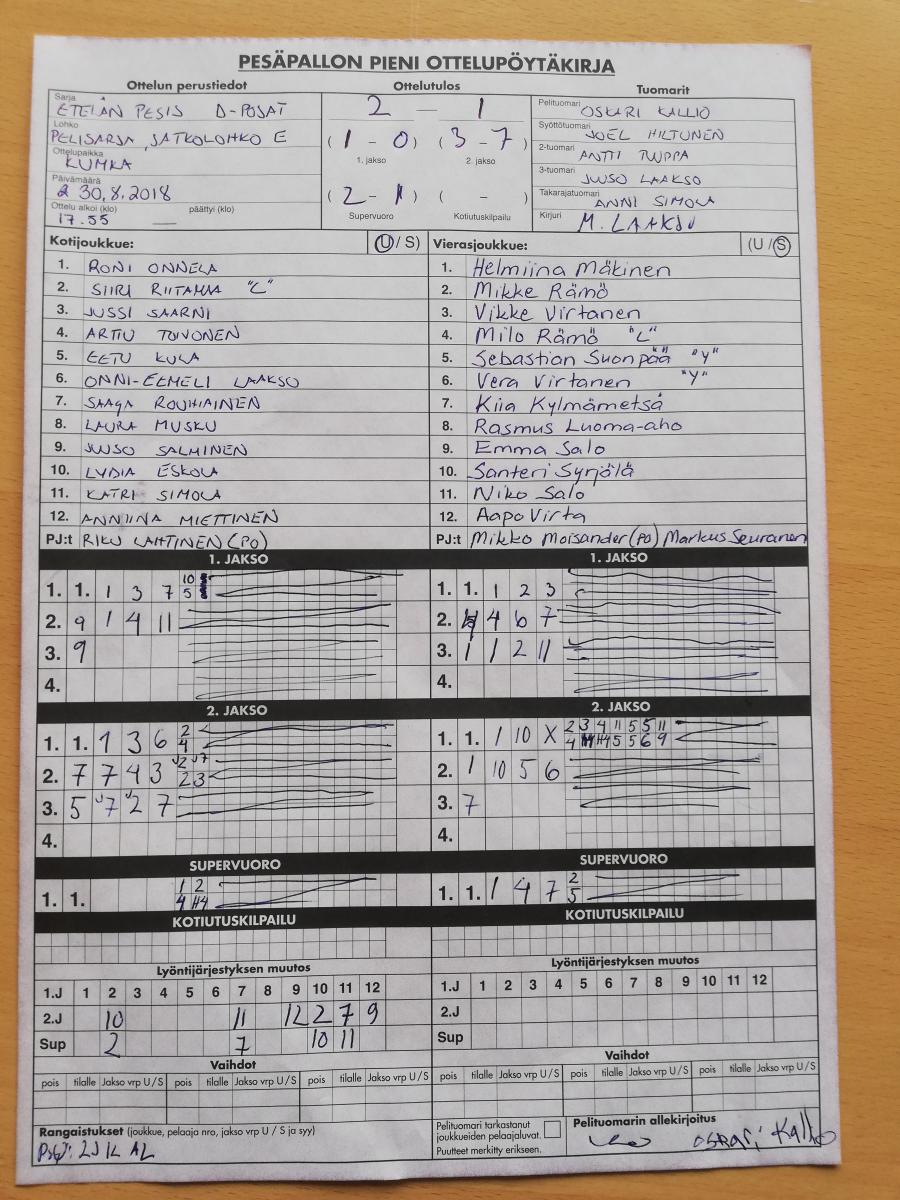 PESÄPALLON PIENI OTTELUPÖYTÄKIRJA
Ottelun perustiedot Ottelutulos Tuomarit
Sarja
ETELÄN PESIS D-POJAT
Lohko
PELISARJA, JATKOLOHKO E
Ottelupaikka
KUMKA
Päivämäärä
30.8.2018
Ottelu alkoi (klo) päättyi (klo)
17.55
2 — 1
(1 - 0) (3 - 7)
1. jakso 2. jakso
(2 - 1) ( - )
Supervuoro Kotiutuskilpailu
Pelituomari OSKARI KALLIO
Syöttötuomari JOEL HILTUNEN
2-tuomari ANTTI TUPPA
3-tuomari JUUSO LAAKSO
Takarajatuomari ANNI SIMOLA
Kirjuri M. LAAKSO
Kotijoukkue: (U / S)
1. RONI ONNELA
2. SIIRI RIITAMAA "L"
3. JUSSI SAARNI
4. ARTTU TOIVONEN
5. EETU KULA
6. ONNI-EEMELI LAAKSO
7. SAAGA ROUHIAINEN
8. LAURA MUSKU
9. JUUSO SALMINEN
10. LYDIA ESKOLA
11. KATRI SIMOLA
12. ANNIINA MIETTINEN
PJ:t RIKU LAHTINEN (PO)
Vierasjoukkue: (U / S)
1. Helmiina Mäkinen
2. Mikke Rämö
3. Vikke Virtanen
4. Milo Rämö "L"
5. Sebastian Suonpää "Y"
6. Vera Virtanen "Y"
7. Kiia Kylmämetsä
8. Rasmus Luoma-aho
9. Emma Salo
10. Santeri Syrjölä
11. Niko Salo
12. Aapo Virta
PJ:t Mikko Moisander (PO) Markus Seuranen
1. JAKSO
1. 1. 1 3 7 10 5
2. 9 1 4 11
3. 9
4.
1. JAKSO
1. 1. 1 2 3
2. 4 6 7
3. 1 1 2 11
4.
2. JAKSO
1. 1. 1 3 6 2 4
2. 7 7 4 3 2 7 2 3
3. 5 7 2 7
4.
2. JAKSO
1. 1. 1 10 X 2 3 4 11 5 5 11
4 5 5 6 9
2. 1 10 5 6
3. 7
4.
SUPERVUORO
1. 1. 1 2
4 4
SUPERVUORO
1. 1. 1 4 7 2 5
KOTIUTUSKILPAILU
KOTIUTUSKILPAILU
Lyöntijärjestyksen muutos
1.J 1 2 3 4 5 6 7 8 9 10 11 12
2.J 10 11 12 2 7 9
Sup 2 7 10 11
Lyöntijärjestyksen muutos
1.J 1 2 3 4 5 6 7 8 9 10 11 12
2.J
Sup
Vaihdot
pois tilalle Jakso vrp U / S pois tilalle Jakso vrp U / S pois tilalle Jakso vrp U / S
Vaihdot
pois tilalle Jakso vrp U / S pois tilalle Jakso vrp U / S pois tilalle Jakso vrp U / S
Rangaistukset (joukkue, pelaaja nro, jakso vrp U / S ja syy)
Pelituomari tarkastanut
joukkueiden pelaajaluvat.
Puutteet merkitty erikseen.
Pelituomarin allekirjoitus
Oskari Kallio